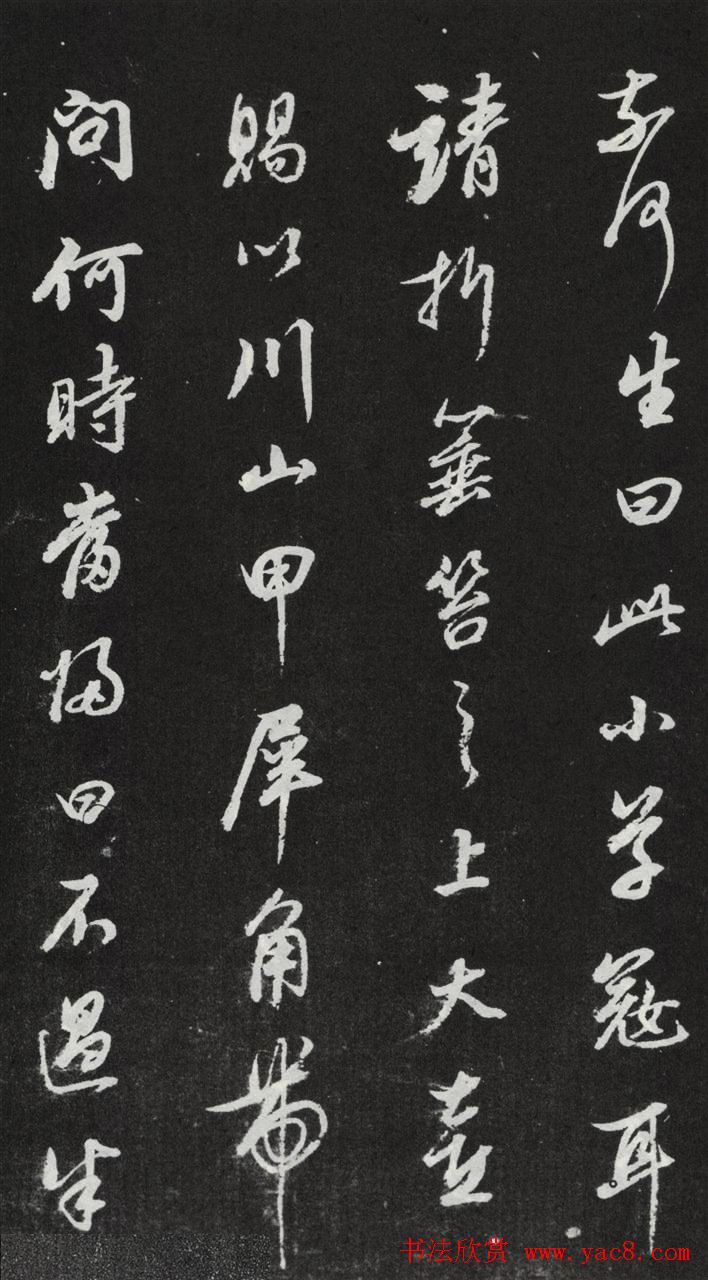 奈何生曰此小草寇耳
請折箠笞之上大喜
賜以川山甲犀角帶
問何時當歸曰不過半
书法欣赏 www.yac8.com